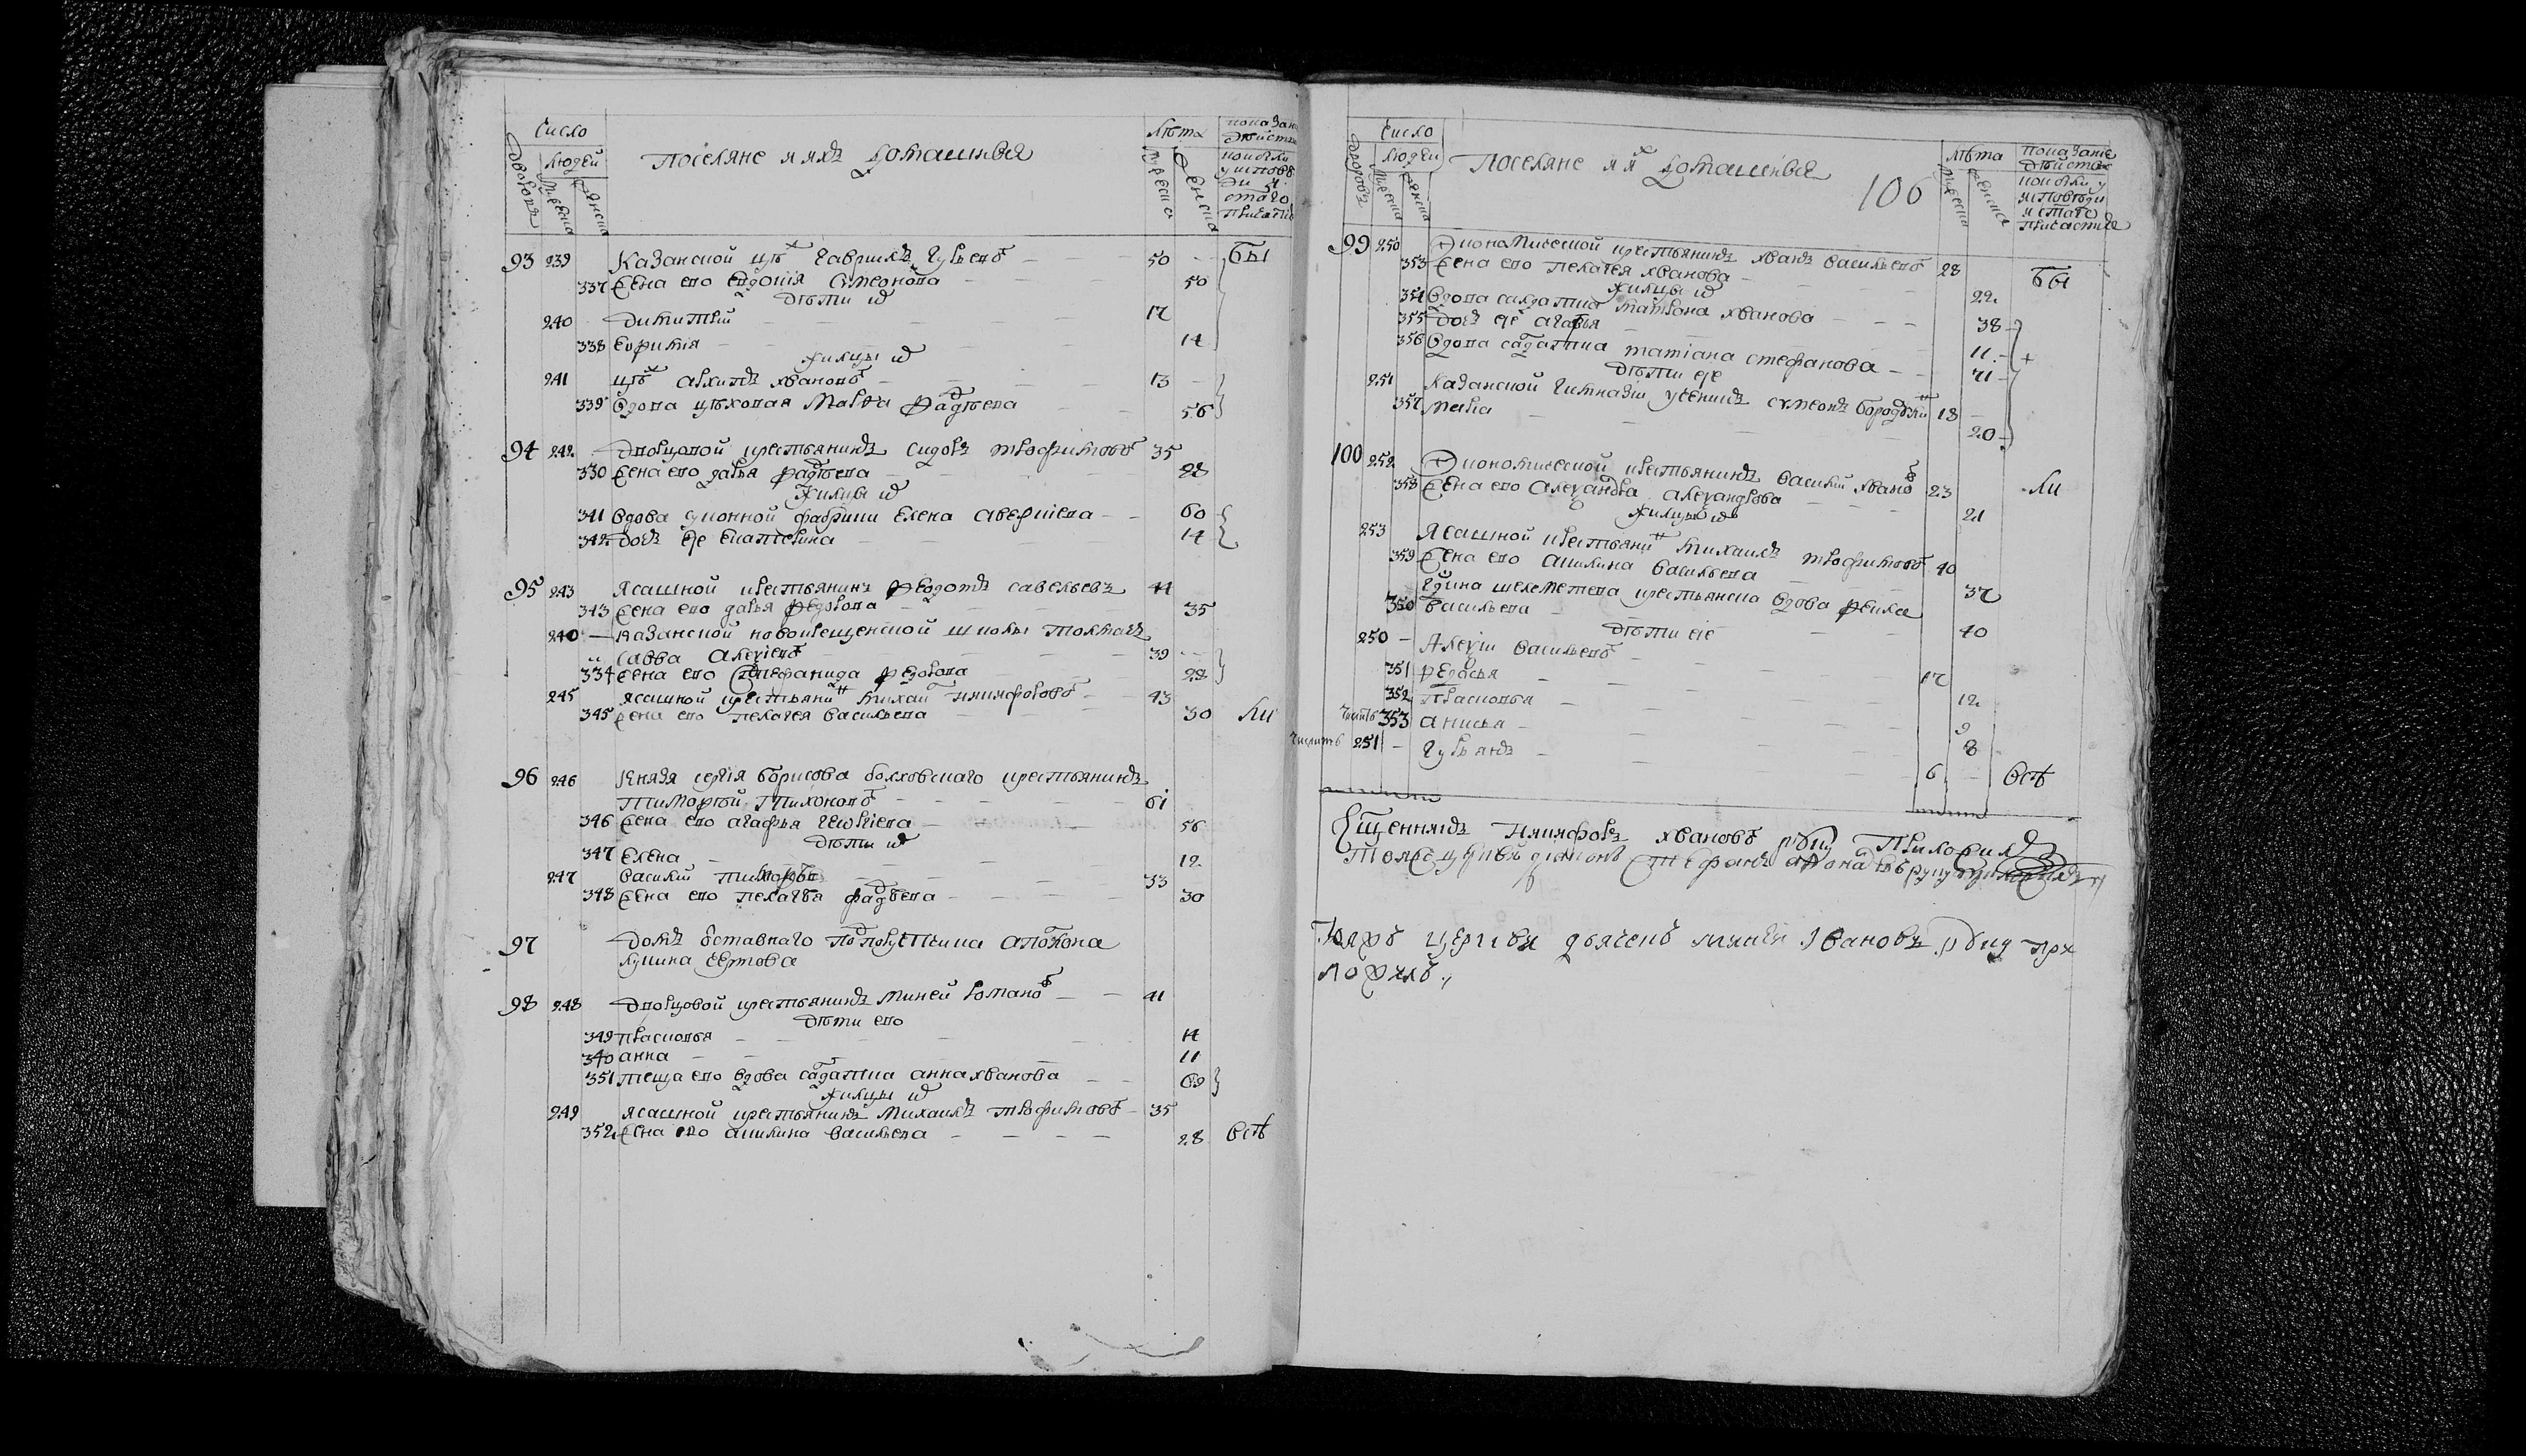 Число
Людей
Дворовъ
Мужеска
Женска
Поселяне и ихъ домашнѣя
Лѣта
Мужеска
Женска
93 239 Казанской цѣх Гаврилъ Гурьевъ 50 Бы
337 Жена ево Евдокія Сѵмеонова 50
дѣти их
240 Димитрій 17
338 Евфимія 14
Жилцы их
241 цѣх Архипъ Ивановъ 13
339 Вдова цѣховая Марѳа Фадѣева 56
94 242 Дворцовой крестьянинъ Сидоръ Трофимовъ 35
330 Жена ево Дарья Фадѣева 28
Жилцы их
341 Вдова суконной фабрики Елена Аверкіева 60
342 дочь ее Екатерина 14
95 243 Ясашной крестьянинъ Федотъ Савельевъ 44
343 Жена ево Дарья Федорова 35
240 Казанской новокрещенской школы толмачъ
Савва Алеѯіевъ 39
334 Жена ево Стефанида Федорова 29
245 Ясашной крестьянин Михаил Никифоровъ 43
345 Жена ево Пелагея Васильева 30 ли
96 246 Князя Сергія Борисова Болховскаго крестьянинъ
Тимофей Тихоновъ 61
346 Жена ево Агафья Георгіева 56
дѣти их
347 Елена 12
247 Василий Тимофеев 33
348 Жена ево Пелагѣя Фадѣева 30
97 Домъ отставнаго подпорутчика Аполона
Лукина Чертова
98 248 Дворцовой крестьянинъ Миней Романов 41
дѣти ево
349 Прасковья 14
340 Анна 11
351 теща ево вдова салдатка Анна Иванова 69
Жилцы их
249 Ясашной крестьянинъ Михаилъ Трофимовъ 35
352 Жена ево Акилина Васильева 28 Всѣ
Число
Людей
Дворовъ
Мужеска
Женска
Поселяне и их домашнѣя
106
Лѣта
Мужеска
Женска
показаніе
действа
кто былъ у
исповѣди
и с таго
причастия
99 250 Економической крестьянинъ Иванъ Васильевъ 28 Бы
353 Жена ево Пелагея Иванова 22
Жилцы их
354 Вдова салдатка Матрона Иванова 38
355 дочь ее Агафья 11
356 Вдова салдатка Татіана Стефанова 41
дѣти ее
251 Казанской гимназіи ученикъ Сѵмеонъ 18
357 Марія 20
100 252 Економической крестьянинъ Василій Иванов 23 ли
358 Жена ево Алеѯандра Алеѯандрова 21
Жилцы их
253 Ясашной крестьянин Михаилъ Трофимовъ 40
359 Жена ево Акилина Васильева 37
Гдина Шереметева крестьянска вдова Фекла
350 Васильева 40
дѣти ее
250 Алеѯіи Васильевъ 17
351 Федосья 12
352 Прасковья 9
353 Анисья 8
251 Гурьянъ 6 Всѣ
Сщенникъ Никифоръ Ивановъ руку приложилъ
Тояже церкви дьяконъ Стефанъ руку приложилъ
Тояжъ церкви дьячекъ Ивановъ руку при
ложилъ